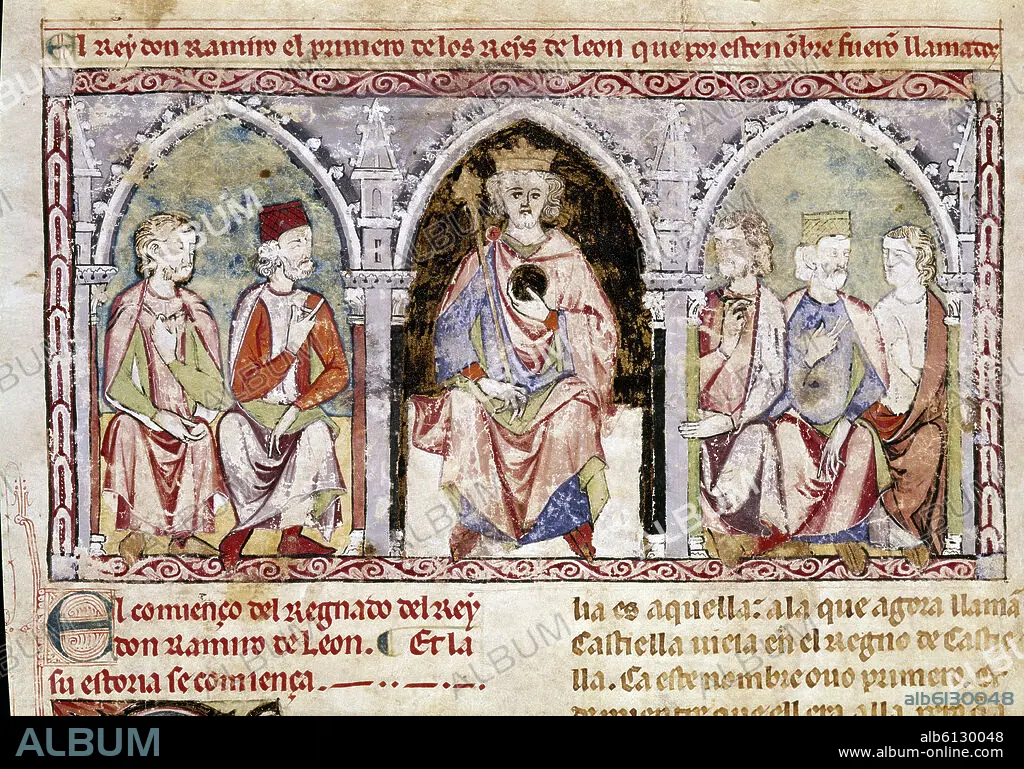 El Rey don Ramiro el primero de los Reis de leon que por este nõbre fuerõ llamados
El comienço del Regnado del Rey
don Ramiro de Leon. Et la
su estoria se comiença
lia es aquella: a la que agora llamã
Castiella uieia en el Regno de Castie
lla. Ca este nombre ouo primero. Et
ALBUM
alb6130048
ALBUM
alb6130048
www.album-online.com